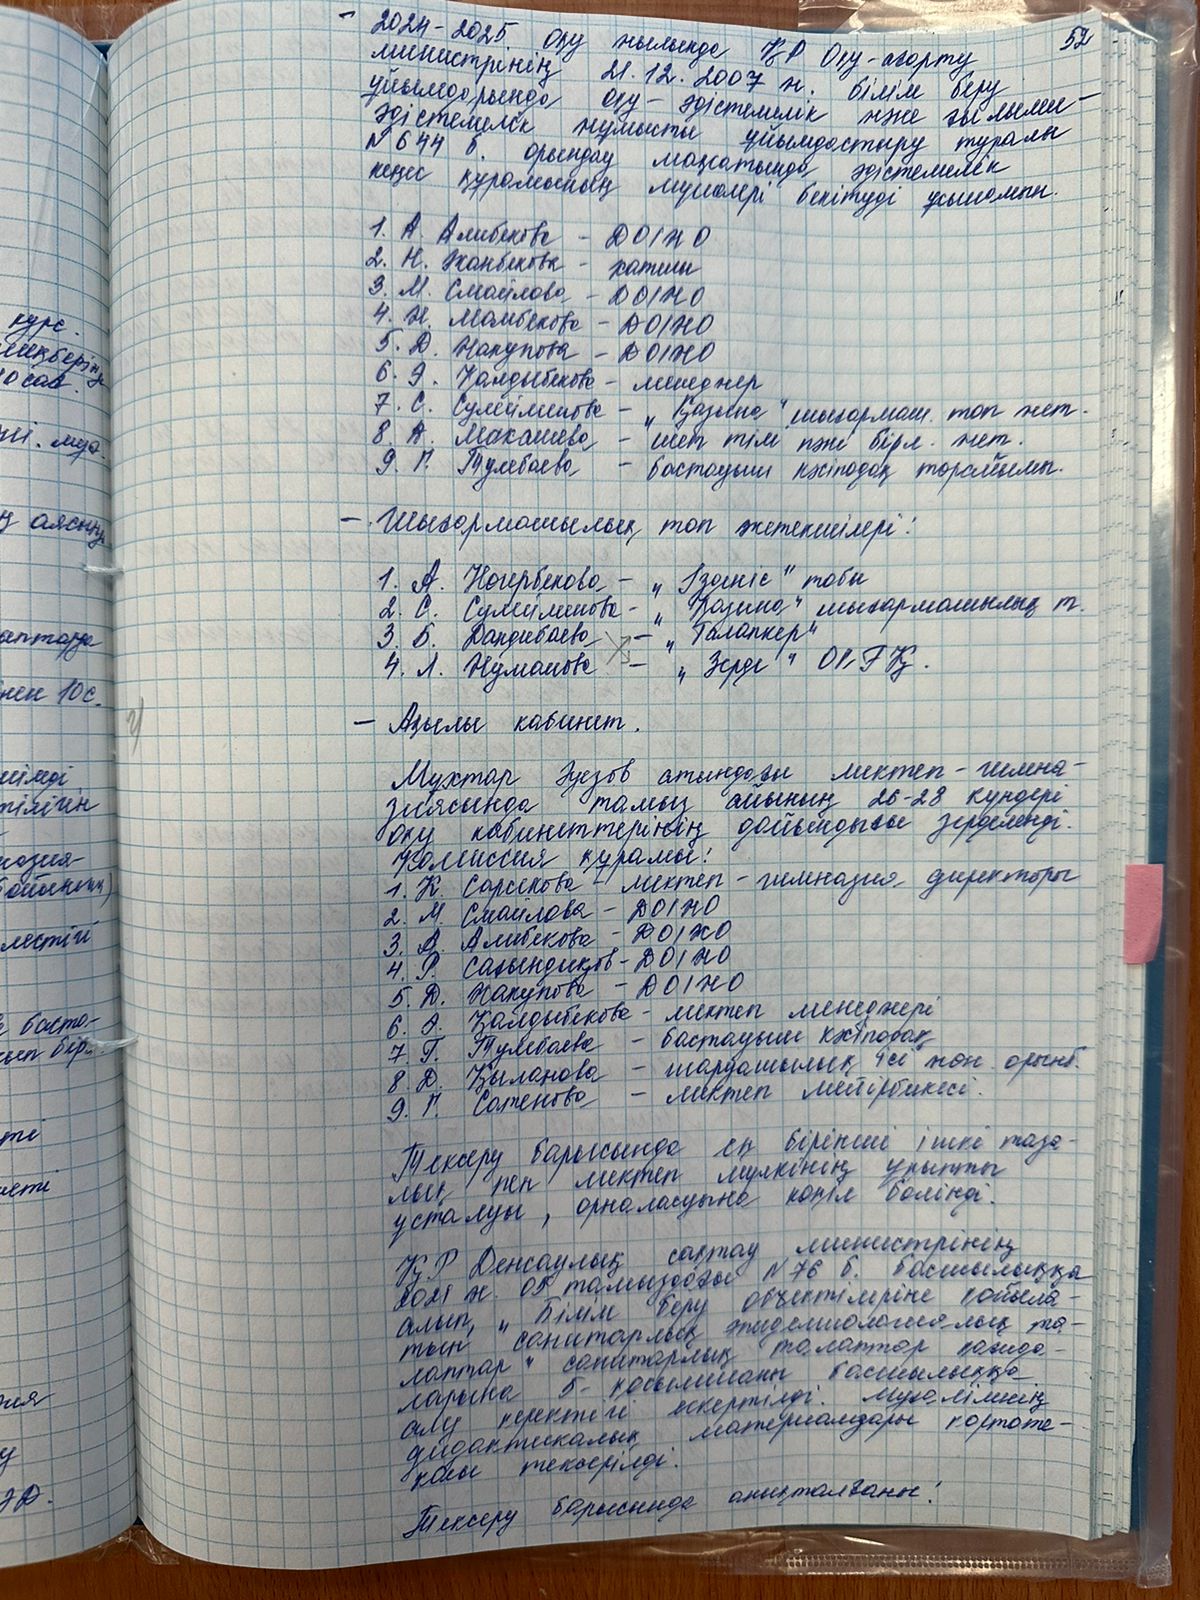 52
- 2024-2025 оқу жылында ҚР Оқу-ағарту
министрінің 21.12.2007 ж. білім беру
ұйымдарында оқу-әдістемелік және ғылыми-
әдістемелік жұмысты ұйымдастыру туралы
№644 б. орындау мақсатында әдістемелік
кеңес құрамының мүшелері бекітуді ұсынамын.
1. А. Алибекова - ДОІЖО
2. Н. Жанбекова - хатшы
3. М. Смайлова - ДОІЖО
4. Ж. Мамбекова - ДОІЖО
5. Д. Жакупова - ДОІЖО
6. Э. Қалдыбекова - менеджер
7. С. Сулейменова - „Қазына" шығармаш. топ жет.
8. А. Макашева - шет тілі пәні бірл. жет.
9. Г. Тулебаева - бастауыш кәсіподақ төрайымы.
- Шығармашылық топ жетекшілері:
1. А. Ногербекова - „Ізденіс" тобы
2. С. Сулейменова - „Қазына" шығармашылық т.
3. Б. Дандибаева - „Талапкер"
4. Л. Нуманова - „Зерде"
- Ақылы кабинет.
Мухтар Әуезов атындағы мектеп-гимна-
зиясында тамыз айының 26-28 күндері
оқу кабинеттерінің дайындығы зерделенді.
Комиссия құрамы:
1. К. Сарсекова - мектеп-гимназия директоры
2. М. Смайлова - ДОІЖО
3. А. Алибекова - ДОІЖО
4. Р. Сағындықов - ДОІЖО
5. Д. Жакупова - ДОІЖО
6. Э. Қалдыбекова - мектеп менеджері
7. Г. Тулебаева - бастауыш кәсіподақ
8. Д. Қыланова - шаруашылық ісі жөн. орынб.
9. Г. Сатенова - мектеп мейірбикесі.
Тексеру барысында ең бірінші ішкі таза-
лық пен мектеп мүлкінің ұқыпты
ұсталуы, орналасуына көңіл бөлінді.
ҚР Денсаулық сақтау министрінің
2021 ж. 05 тамыздағы №76 б. басшылыққа
алып, „Білім беру объектілеріне қойыла-
тын санитарлық эпидемиологиялық та-
лаптар" санитарлық талаптар қағида-
ларына 5-қосымшаны басшылыққа
алу керектігі ескертілді. Мұғалімнің
дидактикалық материалдары картоте-
касы тексерілді.
Тексеру барысында анықталғаны: